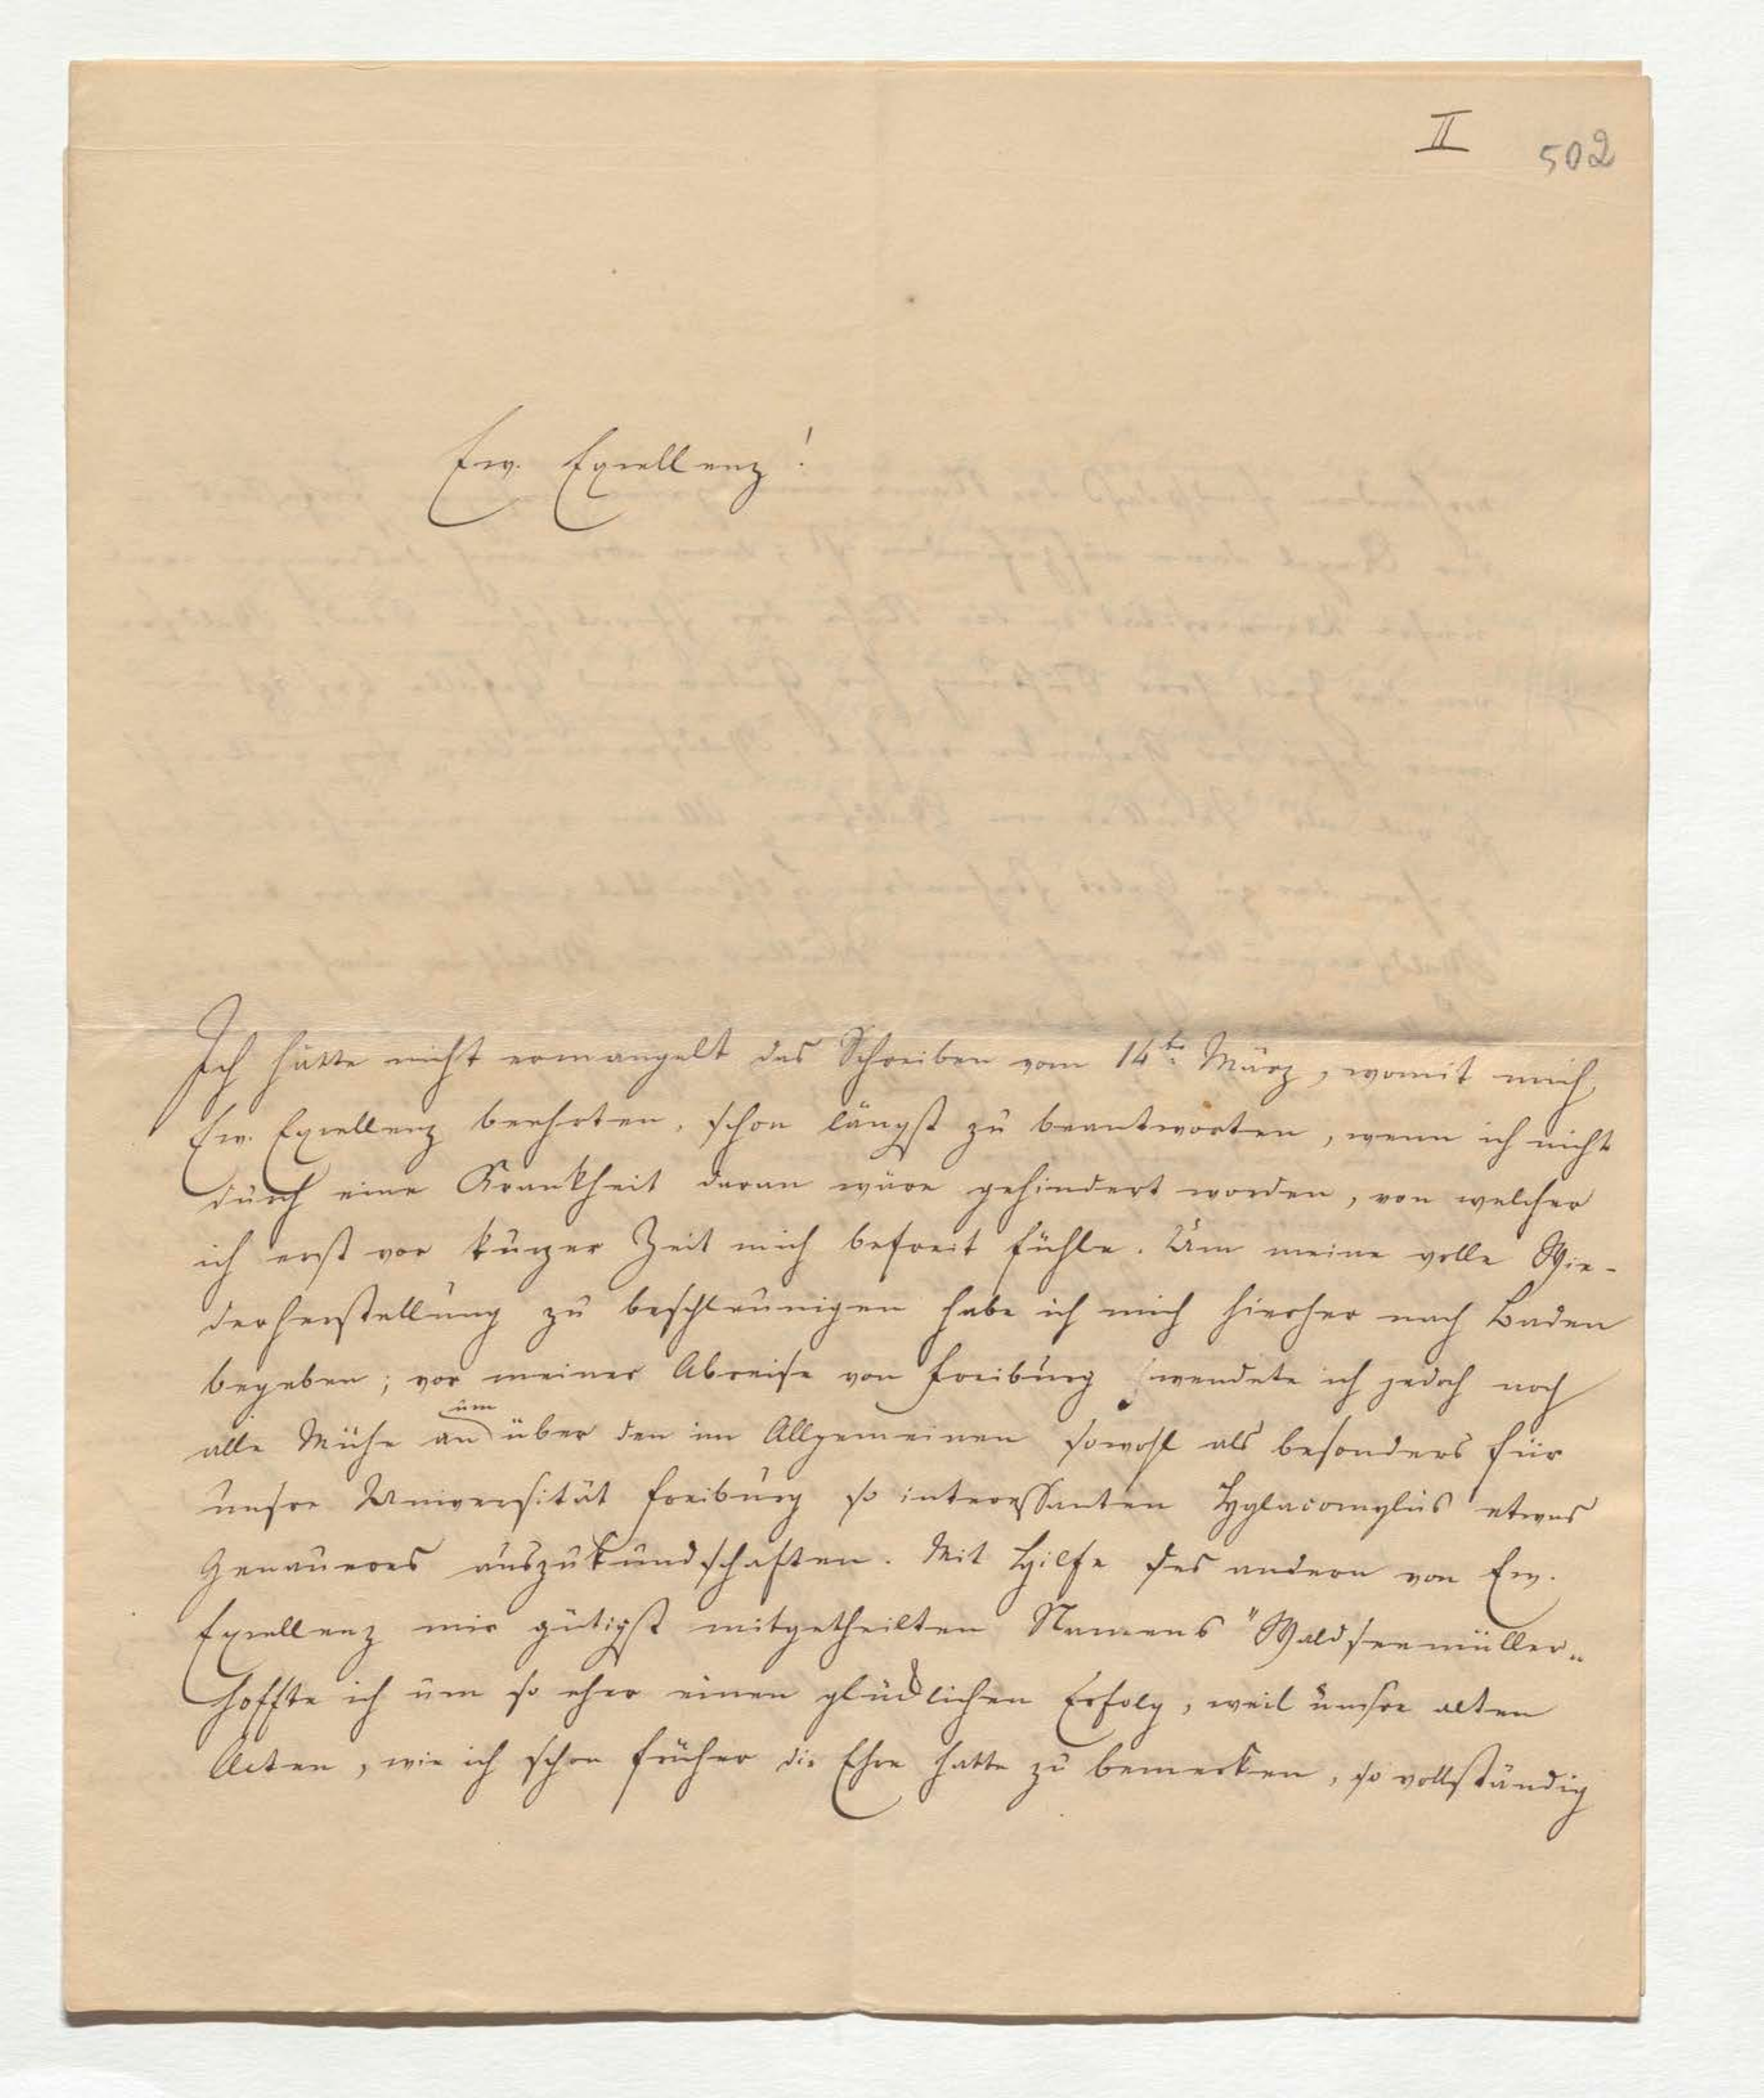 II 502
Ew. Excellenz!
Ich hätte nicht ermangelt das Schreiben vom 14ten März, womit mich
Ew. Excellenz beehrten, schon längst zu beantworten, wenn ich nicht
durch eine Krankheit daran wäre gehindert worden, von welcher
ich erst vor kurzer Zeit mich befreit fühle. Um meine volle Wie-
derherstellung zu beschleunigen habe ich mich hierher nach Baden
begeben; vor meiner Abreise von Freiburg wendete ich jedoch noch
um
alle Mühe an über den im Allgemeinen sowohl als besonders für
unsre Universität Freiburg so interessanten Hylacomylus etwas
Genaueres auszukundschaften. Mit Hilfe des andern von Ew.
Excellenz mir gütigst mitgetheilten Namens "Waldseemüller„
hoffte ich um so eher einen glücklichen Erfolg, weil unsre alten
Acten, wie ich schon früher die Ehre hatte zu bemerken, so vollständig